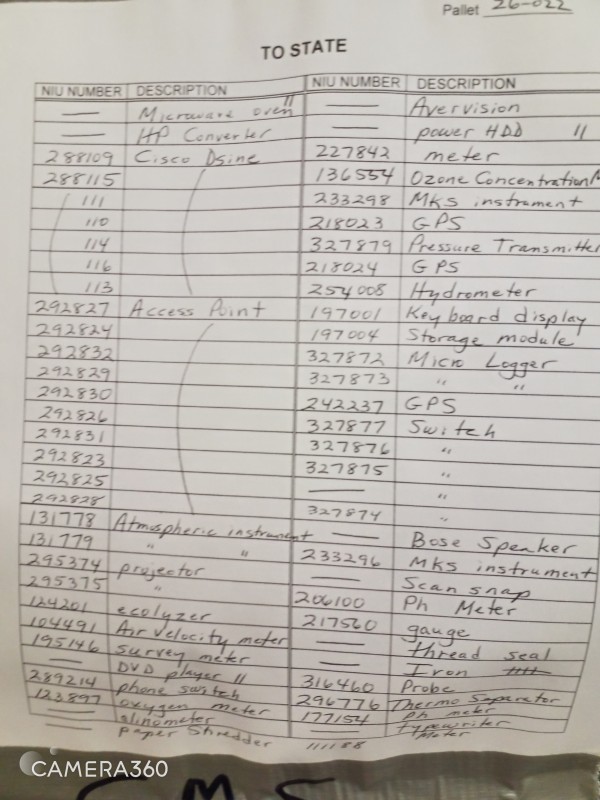 Pallet 26-022
TO STATE
NIU NUMBER DESCRIPTION
— Microwave oven "
— HP Converter
288109 Cisco Dsine
288115
111
110
114
116
113
292827 Access Point
292824
292832
292829
292830
292826
292831
292823
292825
292828
131778 Atmospheric instrument
131779 " "
295374 projector
295375 "
124201 ecolyzer
104491 Air Velocity meter
195146 survey meter
— DVD player 11
289214 phone switch
123897 oxygen meter
— slinometer
— paper Shredder
NIU NUMBER DESCRIPTION
— Avervision
— power HDD 11
227842 meter
136554 Ozone Concentration M
233298 MKS instrument
218023 GPS
327879 Pressure Transmitter
218024 GPS
254008 Hydrometer
197001 Keyboard display
197004 Storage module
327872 Micro Logger
327873 " "
242237 GPS
327877 Switch
327876 "
327875 "
— "
327874 "
— Bose Speaker
233296 MKS instrument
— Scan snap
206100 Ph Meter
217560 gauge
— thread seal
— Iron
316460 Probe
296776 Thermo Separator
177154 ph meter
— typewriter
111188 Meter
CAMERA360